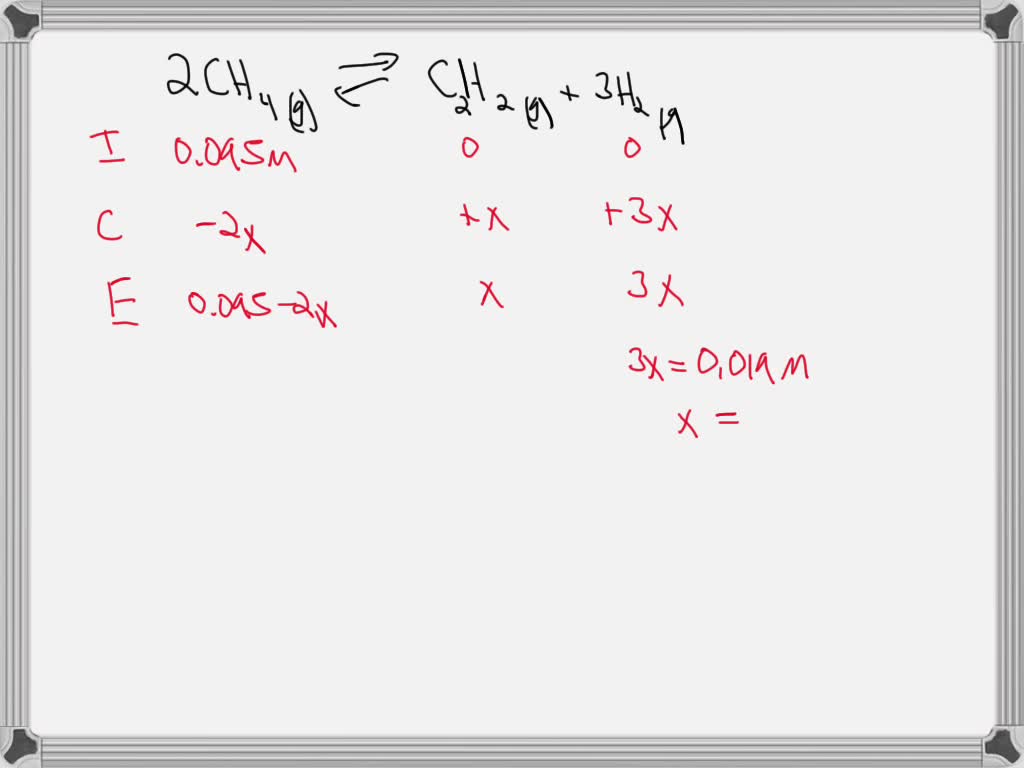 2CH₄(g) ⇌ C₂H₂(g) + 3H₂(g)
I 0.095M 0 0
C -2x +x +3x
E 0.095-2x x 3x
3x = 0.019M
x =